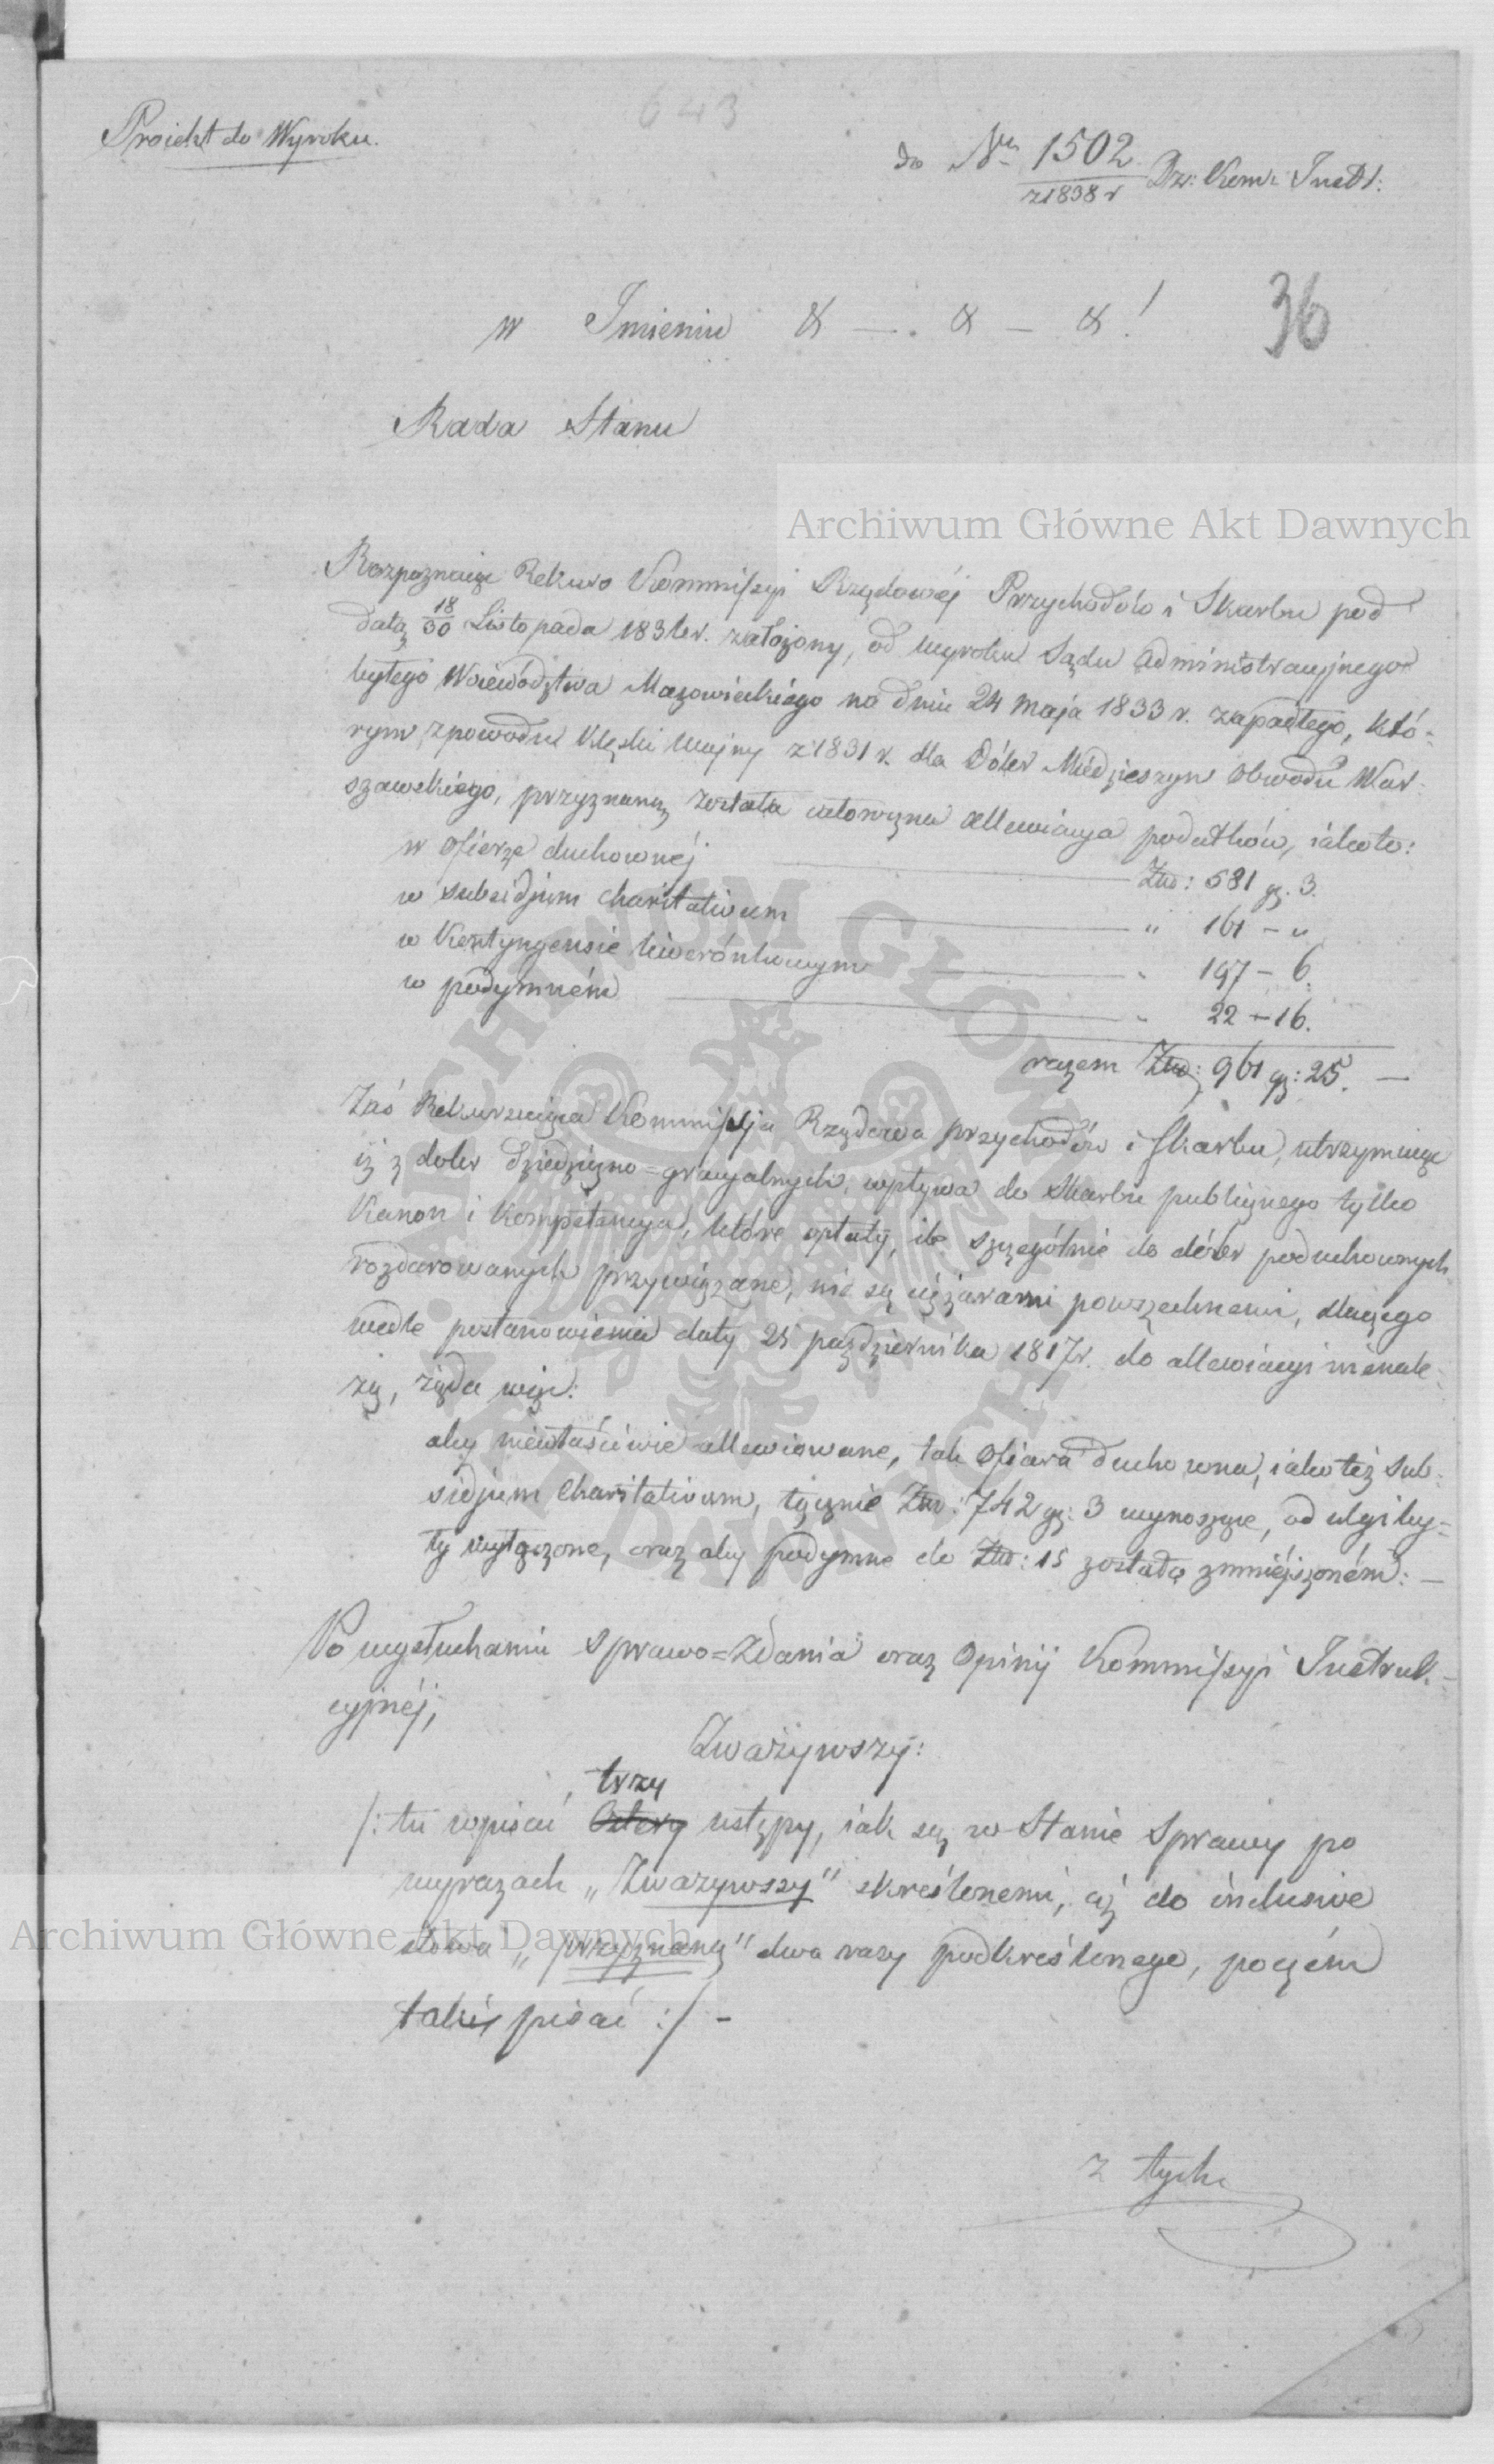 643
Proiekt do Wyroku.
do Nru 1502 Dz: Kom: Instr:
z 1838 r
36
w Imieniu & — . & — & !
Rada Stanu
Archiwum Główne Akt Dawnych
Rozpoznaiąc Rekurs Kommissyi Rządowéj Przychodów i Skarbu pod
datą 18/30 Listopada 183 r. założony, od wyroku Sądu Administracyjnego
byłego Woiewództwa Mazowieckiego na dniu 24 Maja 1833 r. zapadłego, któ-
rym z powodu klęski wojny z 1831 r. dla Dóbr Miedzieszyn Obwodu War-
szawskiego, przyznaną została całoroczna allewiacya podatków, iako to:
w ofierze duchownéj — Złp: 581 gr. 3.
w subsidjum charitativum — " 161 - "
w Kontyngensie liwerónkowym — " 197 - 6.
w podymném — " 22 - 16.
razem Złp: 961 gr: 25. —
Zaś Rekuruiąca Kommissyja Rządowa przychodów i Skarbu, utrzymuiąc
iż z dóbr dziedziczno=gracyalnych, wpływa do Skarbu publicznego tylko
Kanon i Kompetencya, które opłaty, ile szczególnie do dóbr poduchownych
rozdarowanych przywiązane, nie są ciężarami powszechnemi, dlaczego
wedle postanowienia daty 25 października 1817 r. do allewiacyi nienale-
żą, żąda więc:
aby niewłaściwie allewiowane, tak ofiara duchowna, iako też sub-
sidjum Charitativum, łącznie Złp: 742 gr: 3 wynoszące, od ulgi by-
ły wyłączone, oraz aby podymne do Złp: 15 zostało zmniéjszoném: —
Po wysłuchaniu sprawo=zdania oraz Opinij Kommissyi Instruk-
cyjnéj,
Zważywszy:
trzy
/: tu wpisać cztery ustępy, iak są w Stanie Sprawy po
wyrazach „Zważywszy" skreślonemi, aż do inclusive
słowa „przyznaną" dwa razy podkreślonego, poczém
takiż pisać :/ -
Archiwum Główne Akt Dawnych
z tych
ARCHIWUM GŁÓWNE AKT DAWNYCH